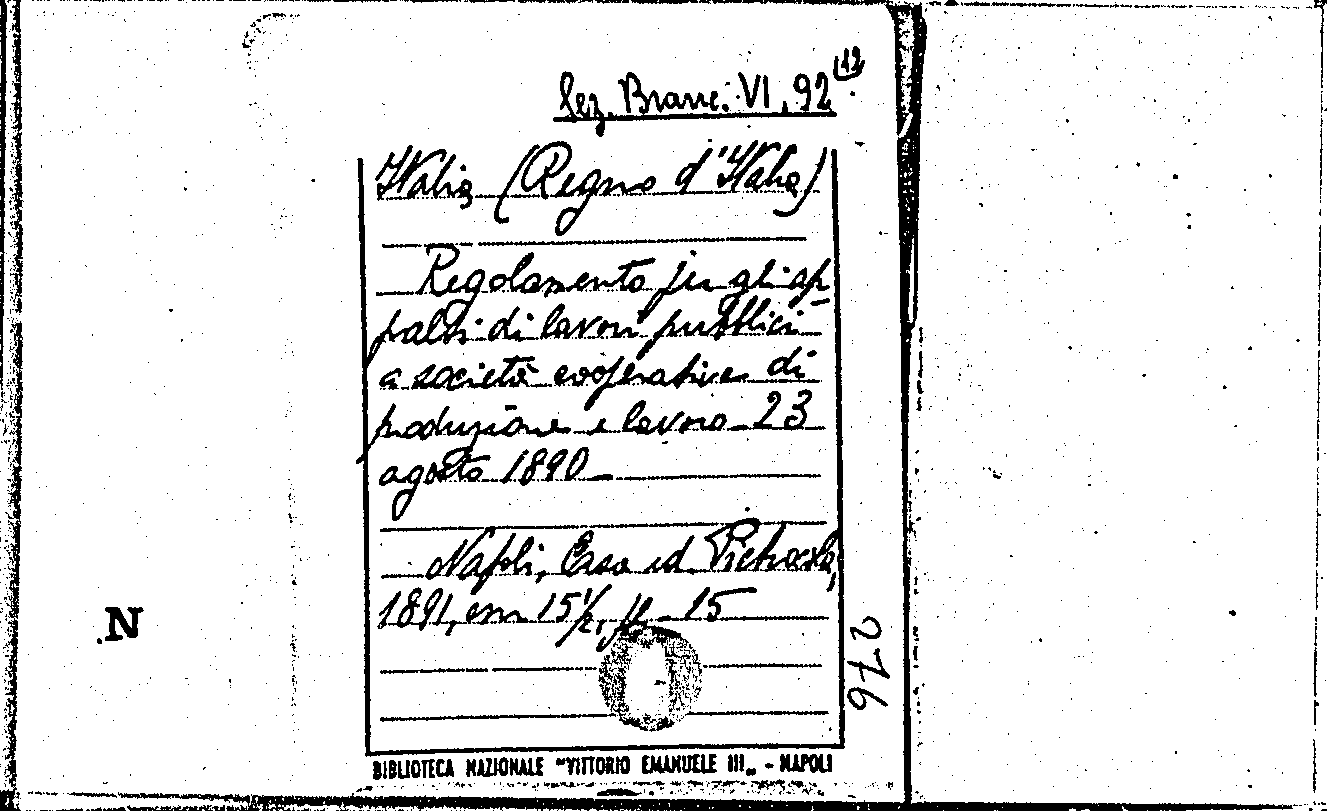 Sez. Branc. VI, 92 (12
Italia (Regno d'Italia)
Regolamento per gli ap
palti di lavori pubblici
a società cooperative di
produzione e lavoro - 23
agosto 1890 -
Napoli, Casa ed. Pietrocola,
1891, cm 15½, pp. 15
N
976
BIBLIOTECA NAZIONALE "VITTORIO EMANUELE III„ - NAPOLI